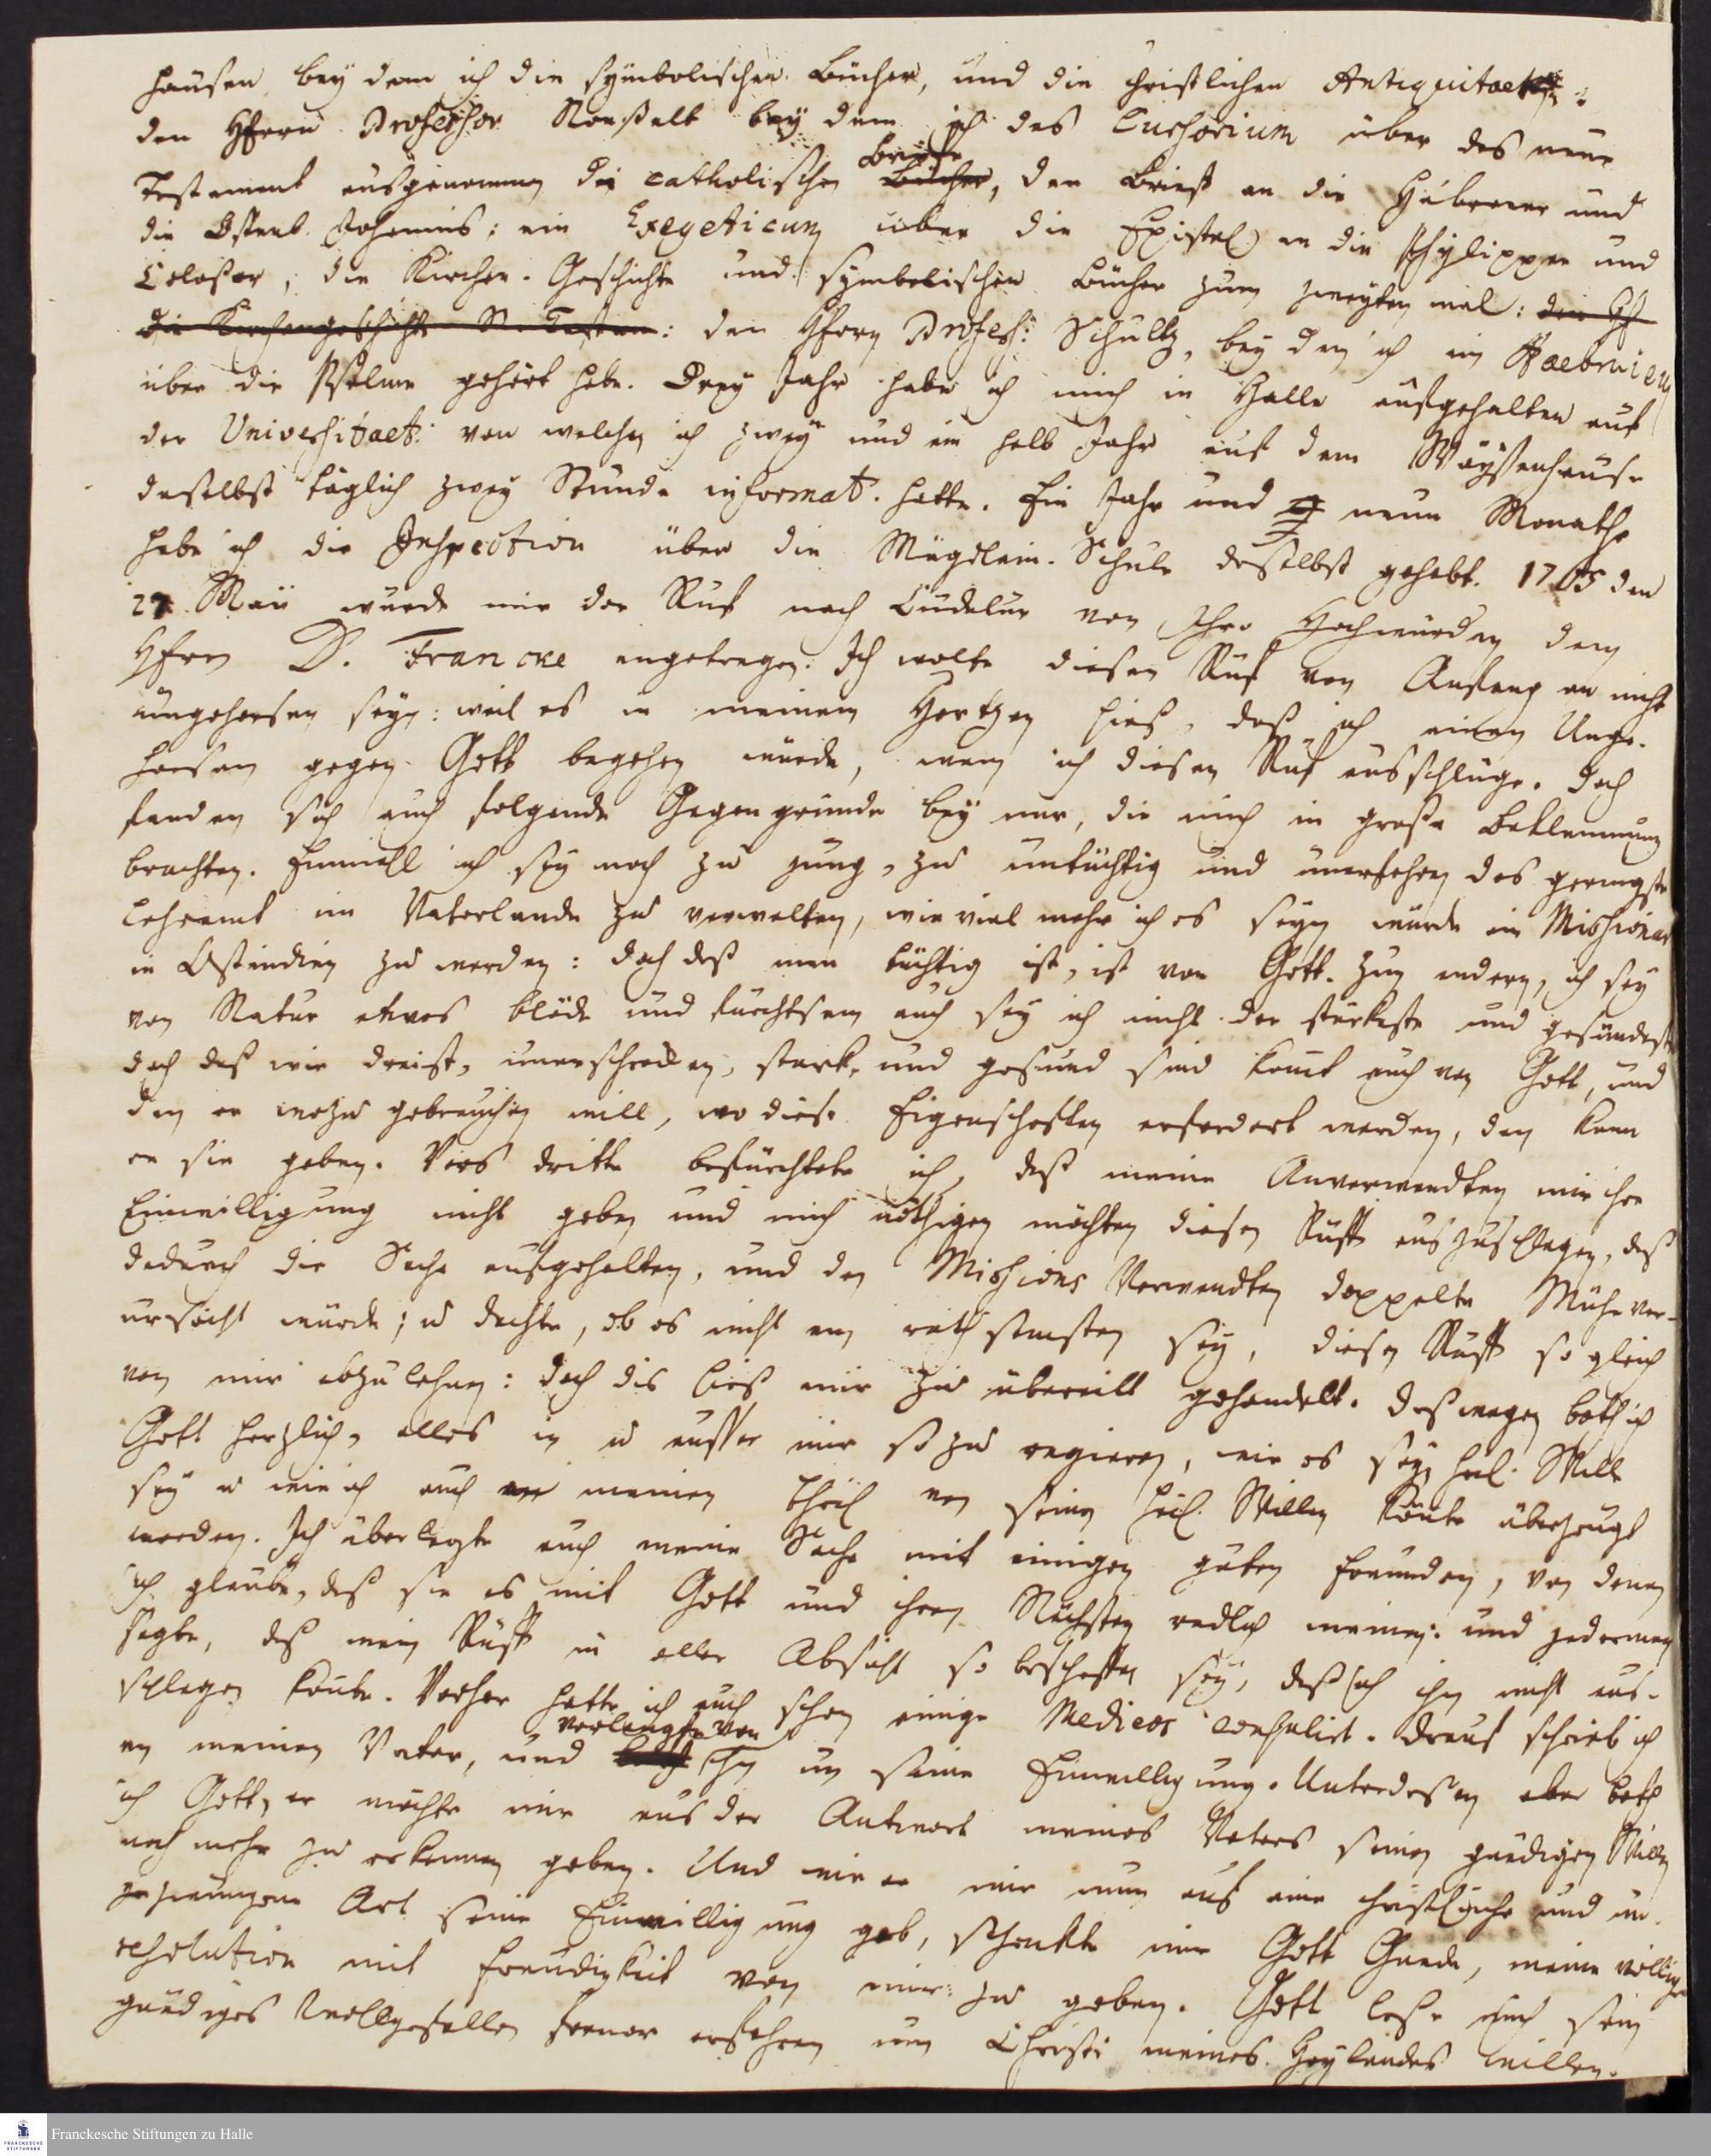 hausen, bey dem ich die symbolischen Bücher, und die christlichen Antiquitaet:
den Herrn Professor Noeßelt bey dem ich das Cursorium über das neue
Testament ausgenommen die catholischen Briefe, den Brief an die Hebraeer und
die Offenb. Johannis; ein Exegeticum über die Epistel an die Phylipper und
Colosser, die Kirchen-Geschichte und symbolischen Bücher zum zweyten mal: den H
die Kirchengeschichte N. Testam: den Herrn Profess: Schultz, bey dem ich ein Haebraicum
über die Psalme gehört habe. Drey Jahr habe ich mich in Halle aufgehalten auf
der Universitaet: von welchen ich zwey und ein halb Jahr auf dem Waysenhause
daselbst täglich zwey Stunde informat. hatte. Ein Jahr und neun Monathe
habe ich die Inspection über die Mägdlein-Schule daselbst gehabt. 1765 den
27. Maii wurde mir der Ruf nach Cudelur von Ihro Hochwürden dem
Herrn D. Francke angetragen. Ich wolte diesen Ruf von Anfang an nicht
ungehorsam seyn: weil es in meinem Hertzen hieß, daß ich einen Unge-
horsam gegen Gott begehen würde, wenn ich diesen Ruf ausschlüge. Doch
fanden sich auch folgende Gegengründe bey mir, die mich in große Beklemmung
brachten. Einmahl ich sey noch zu jung, zu untüchtig und unerfahren das geringste
Lehramt im Vaterlande zu verwalten, wie viel mehr ich es seyn würde ein Missionar
in Ostindien zu werden: doch daß man tüchtig ist, ist von Gott. Zum andern, ich sey
von Natur etwas blöde und furchtsam auch sey ich nicht der stärkste und gesündeste
doch daß wir dreist, unerschrocken, stark, und gesund sind komt auch von Gott, und
den er wozu gebrauchen will, wo diese Eigenschaften erfordert werden, dem kann
er sie geben. Vors dritte befürchtete ich, daß meine Anverwandten mir ihre
Einwilligung nicht geben und mich nöthigen möchten diesen Ruff auszuschlagen, daß
dadurch die Sache aufgehalten, und den Missions Verwandten doppelte Mühe ver-
ursacht würde; u dachte, ob es nicht am rathsamsten sey, diesen Ruff so gleich
von mir abzulehnen: doch dis hieß mir zu übereilt gehandelt. Deßwegen bath ich
Gott herzlich, alles in u ausser mir so zu regieren, wie es seyn heil. Wille
sey u wie ich auch meinen Theil von seinem heil. Willen könte überzeugt
werden. Ich überlegte auch meine Sache mit einigen guten Freunden, von denen
ich glaube, daß sie es mit Gott und ihrem Nächsten redlich meinen: und jederman
sagte, daß mein Ruff in aller Absicht so beschaffen sey, daß ich ihn nicht aus-
schlagen könte. Vorher hatte ich auch schon einige Medicos consulirt. Drauf schrieb ich
an meinen Vater, und verlangte von ihm seine Einwilligung. Unterdessen aber bath
ich Gott, er möchte mir aus der Antwort meines Vaters seinen gnädigen Willen
noch mehr zu erkennen geben. Und wie er mir nun auf eine christliche und un-
gezwungene Art seine Einwilligung gab, schenkte mir Gott Gnade, meine völlige
resolution mit Freudigkeit von mir zu geben. Gott lasse mich sein
gnädiges Wollgefallen ferner erfahren um Christi meines Heylandes willen.
Franckesche Stiftungen zu Halle